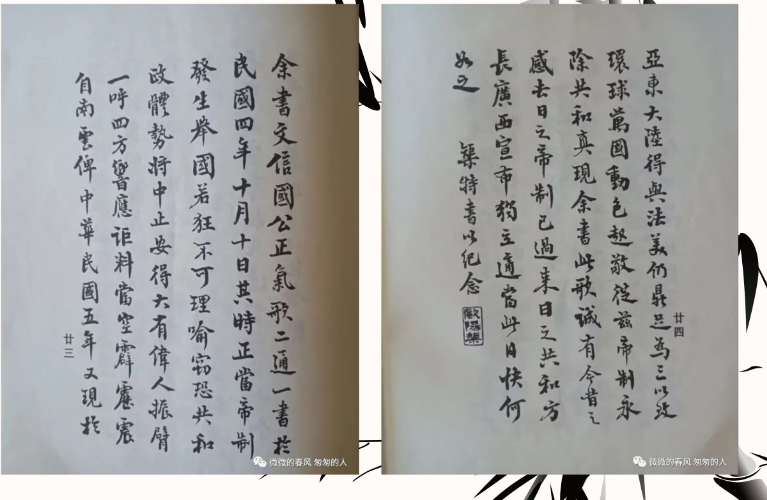 余書文信國公正氣歌二通一書於
民國四年十月十日其時正當帝制
發生舉國若狂不可理喻竊恐共和
政體勢將中止安得大有偉人振臂
一呼四方響應詎料當空霹靂震
自南雲俾中華民國五年又現於
廿三
微微的春风 匆匆的人
亞東大陸得與法美仍鼎足為三以致
環球萬國動色起敬從茲帝制永
除共和真現余書此歌誠有今昔之
感去日之帝制已過来日之共和方
長廣西宣布獨立適當此日快何
如之
榘特書以纪念
歐陽榘
廿四
微微的春风 匆匆的人